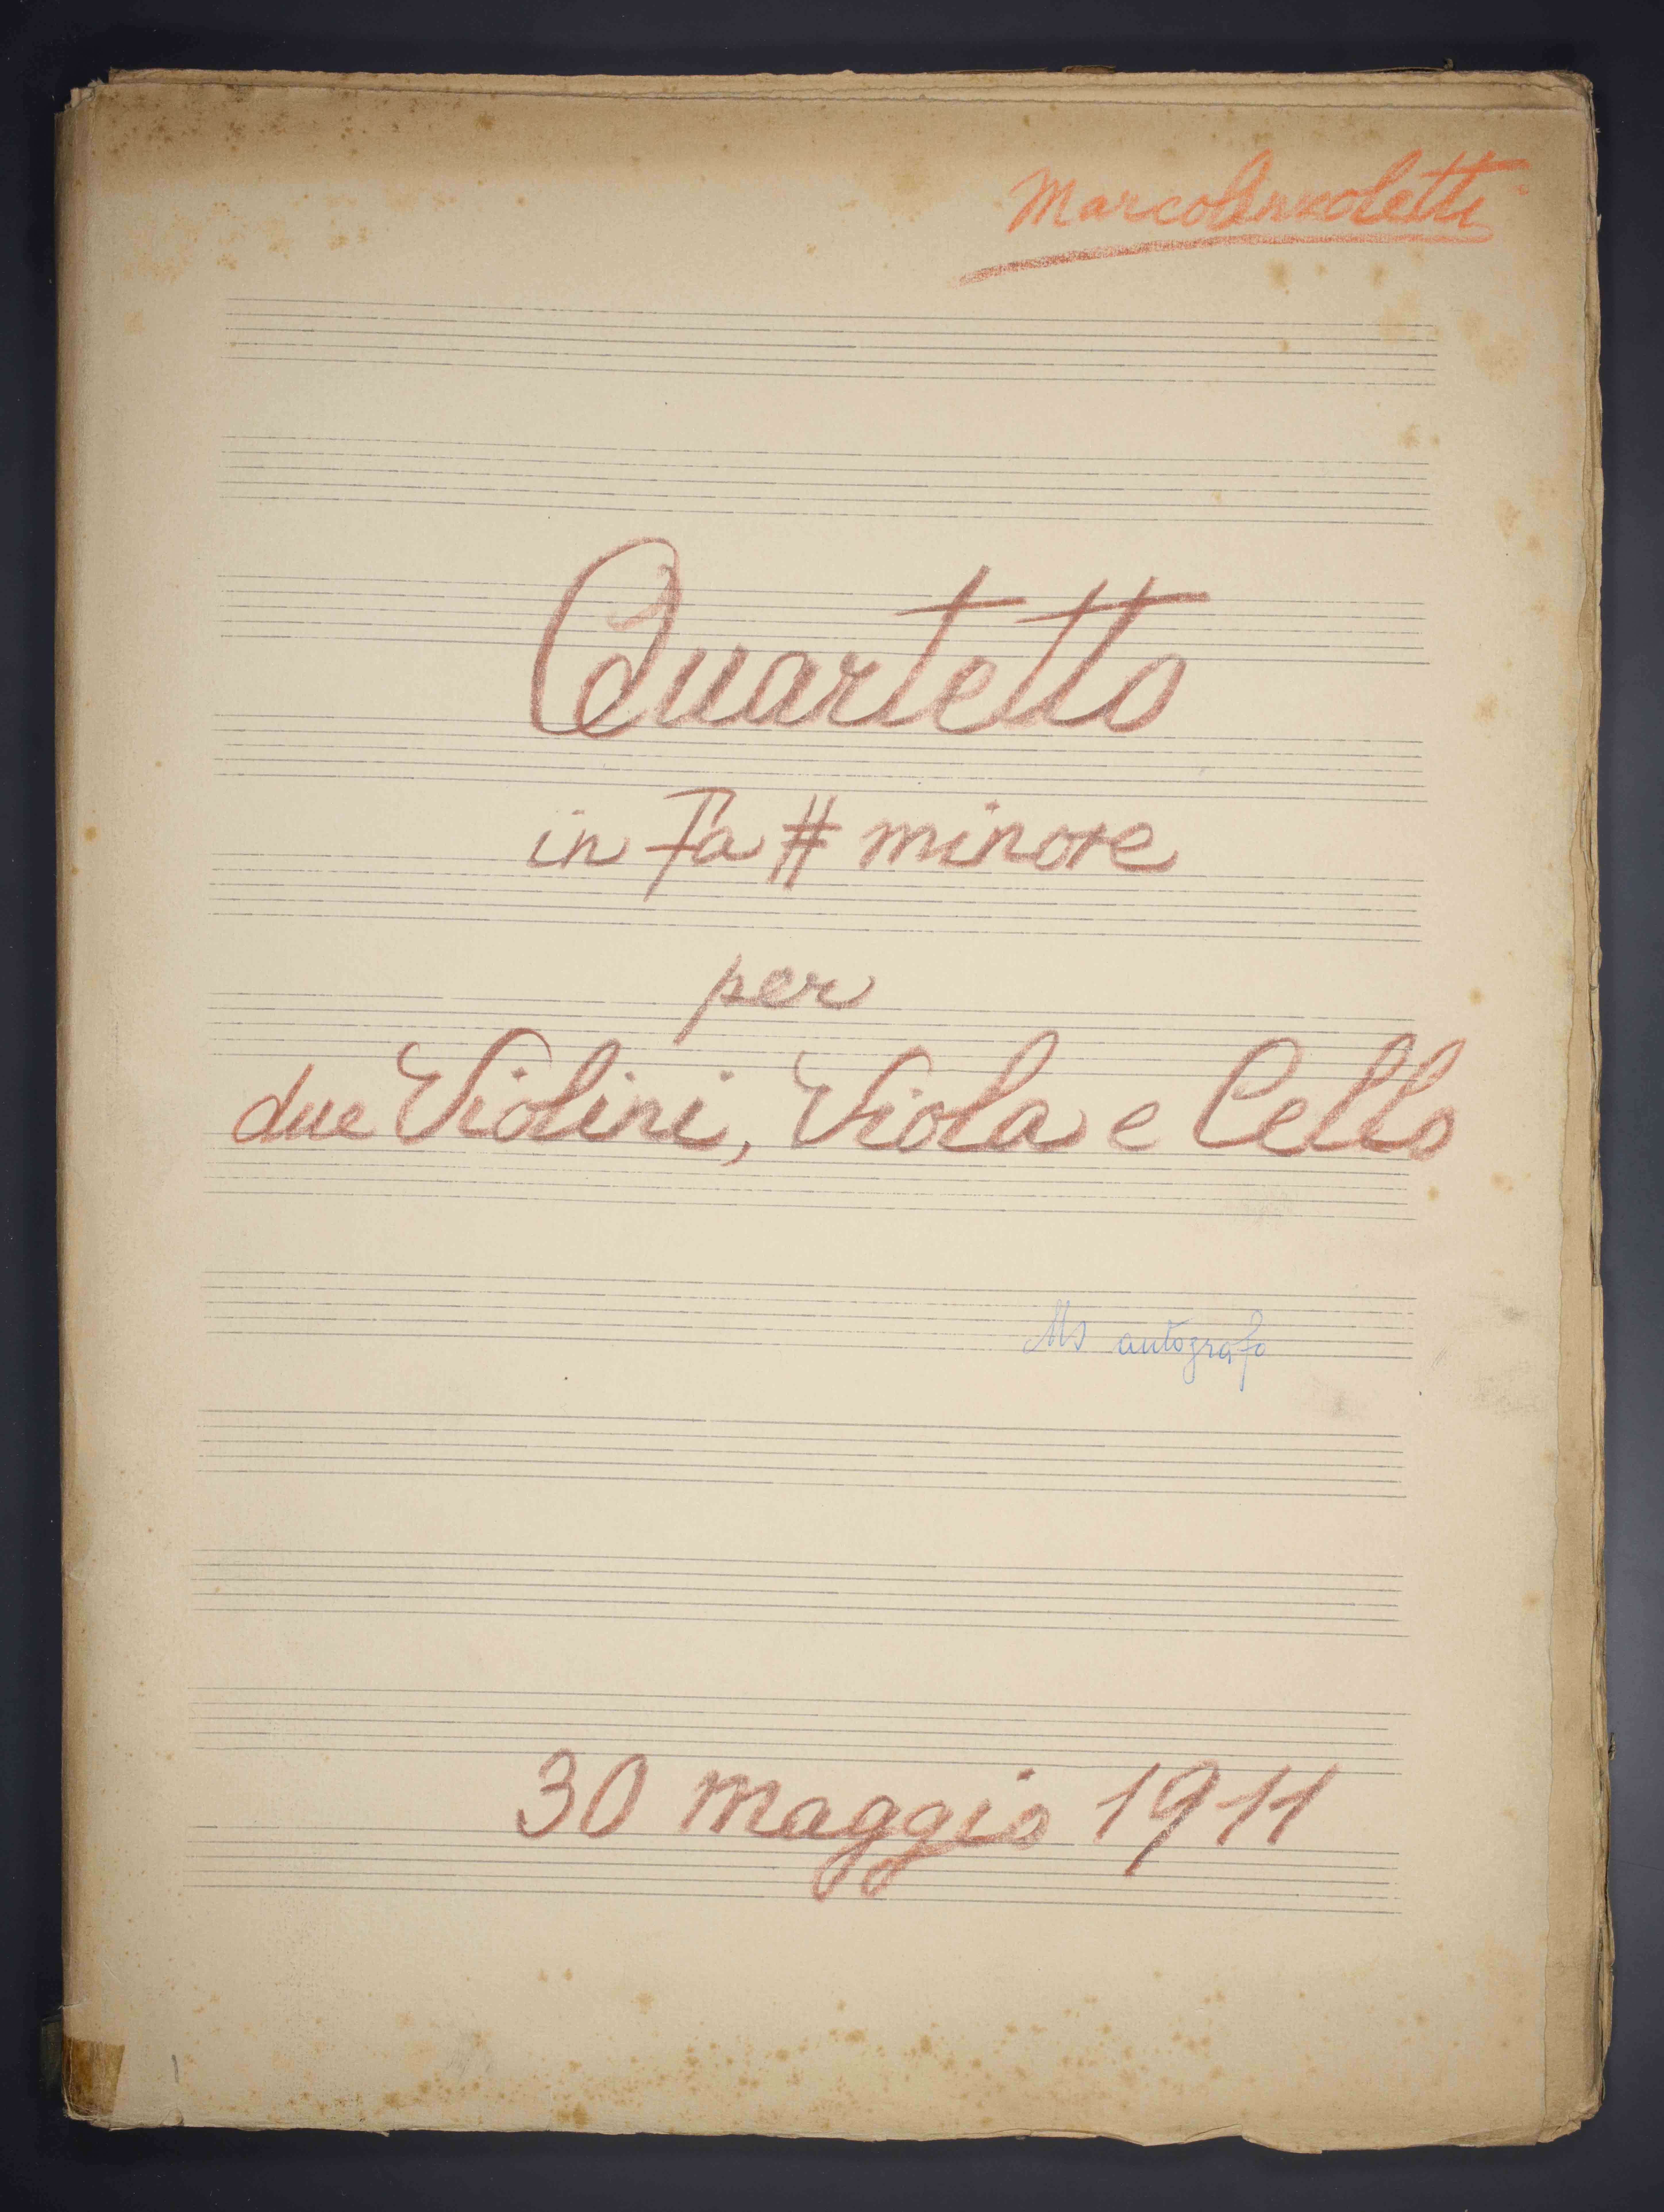 Marco Anzoletti
Quartetto
in Fa # minore
per
due Violini, Viola e Cello
Ms autografo
30 maggio 1911
1